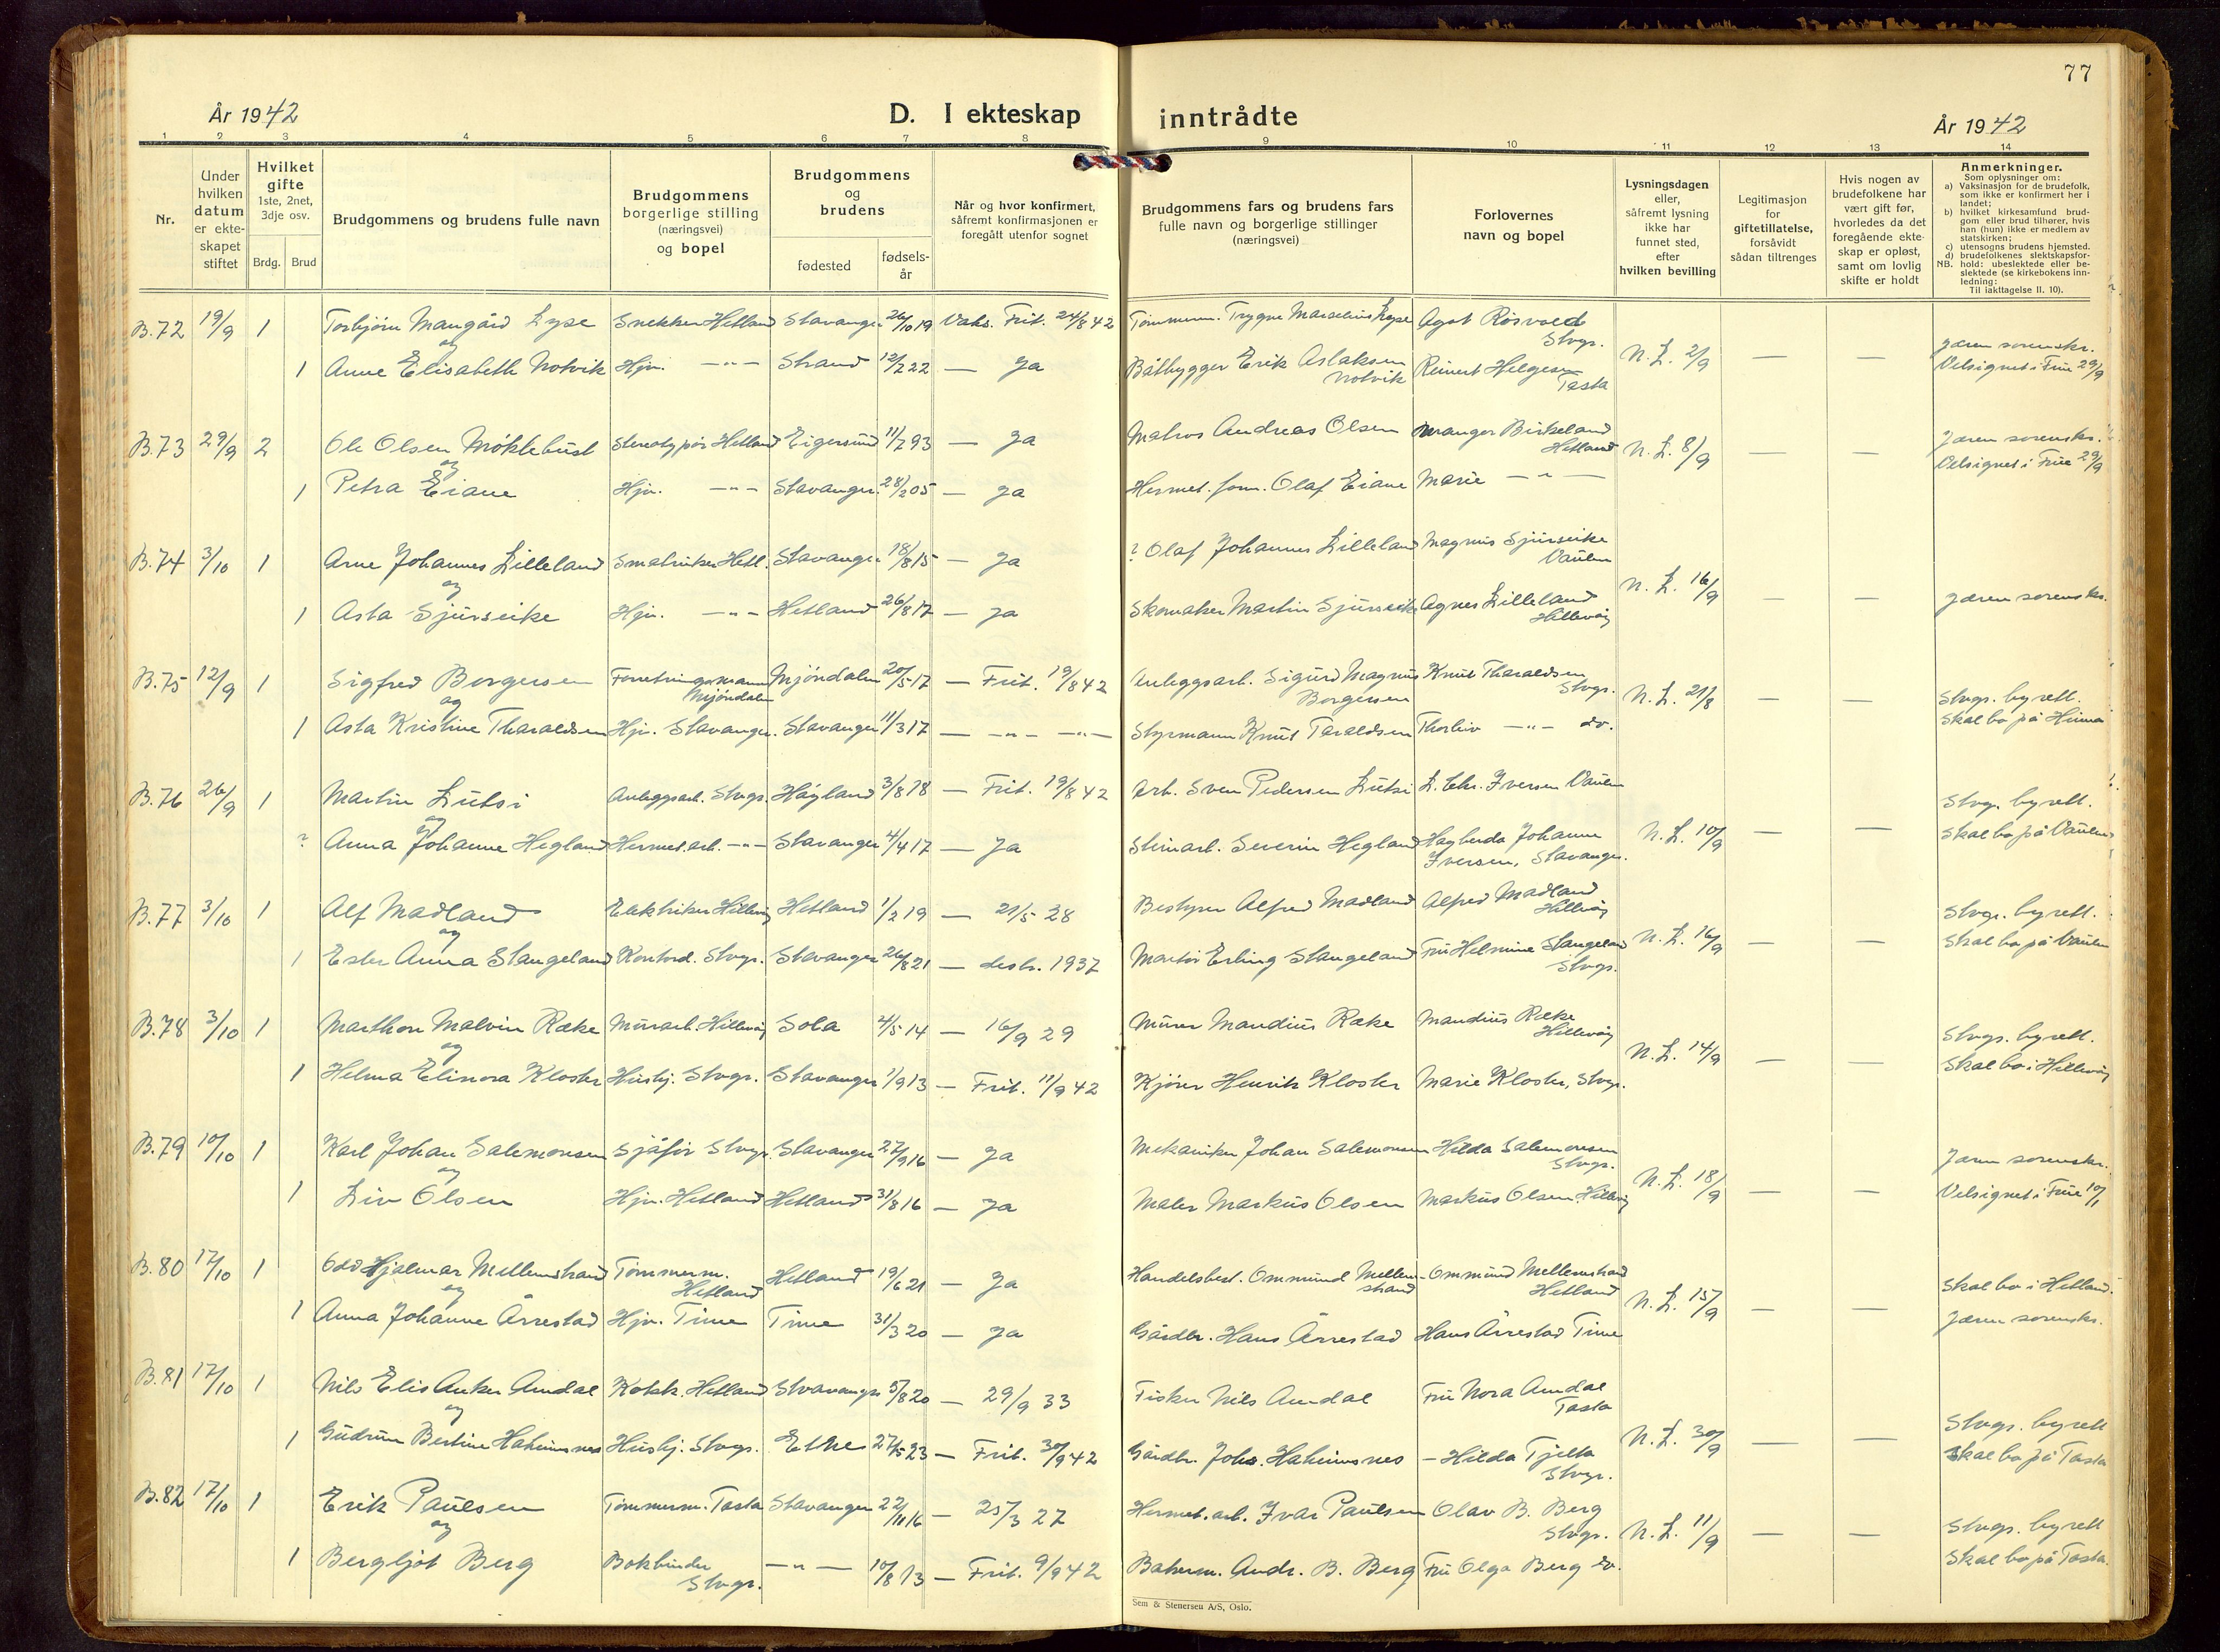 77
År 1942
D. I ekteskap inntrådte
År 1942
1 2 3 4 5 6 7 8 9 10 11 12 13 14
Nr.
Under hvilken datum er ekteskapet stiftet
Hvilket gifte 1ste, 2net, 3dje osv.
Brdg. Brud
Brudgommens og brudens fulle navn
Brudgommens borgerlige stilling (næringsvei) og bopel
Brudgommens og brudens
fødested
fødsels-år
Når og hvor konfirmert, såfremt konfirmasjonen er foregått utenfor sognet
Brudgommens fars og brudens fars fulle navn og borgerlige stillinger (næringsvei)
Forlovernes navn og bopel
Lysningsdagen eller, såfremt lysning ikke har funnet sted, efter hvilken bevilling
Legitimasjon for giftetillatelse, forsåvidt sådan tiltrenges
Hvis nogen av brudefolkene har vært gift før, hvorledes da det foregående ekteskap er opløst, samt om lovlig skifte er holdt
Anmerkninger.
Som oplysninger om:
a) Vaksinasjon for de brudefolk, som ikke er konfirmert her i landet;
b) hvilket kirkesamfund brudgom eller brud tilhører, hvis han (hun) ikke er medlem av statskirken;
c) utensogns brudens hjemsted.
d) brudefolkenes slektskapsforhold: ubeslektede eller beslektede (se kirkebokens innledning:
NB. Til iakttagelse II. 10).
B.72 19/9 1 Torbjørn Mangård Lyse Snekker Hetland Stavanger 26/10 19 Vaks. Frit. 24/8 42 Tømmerm. Trygve Marselius Lyse Agot Rosvold Stvgr. N. L. 2/9 — — Jæren sorenskr.
og
1 Anne Elisabeth Notvik Hjv. —"— Strand 12/7 22 — Ja Båtbygger Erik Aslaksen Notvik Reinert Helgesen Tasta Velsignet i Frue 29/9
B.73 29/9 2 Ole Olsen Møklebust Stereotypør Hetland Eigersund 11/7 93 — Ja Matros Andreas Olsen Mangor Birkeland Hetland N. L. 8/9 — — Jæren sorenskr.
og
1 Petra Eiane Hjv. —"— Stavanger 28/2 05 — Ja Hermet.form. Olaf Eiane Marie —"— Velsignet i Frue 29/9
B.74 3/10 1 Arne Johannes Lilleland Smatruker Hetl. Stavanger 18/8 15 — Ja ? Olaf Johannes Lilleland Magnus Sjurseike Vaulen N. L. 16/9 — — Jæren sorenskr.
og
1 Asta Sjurseike Hjv. —"— Hetland 26/8 17 — Ja Skomaker Martin Sjurseike Agnes Lilleland Hillevåg
B.75 12/9 1 Sigfred Borgersen Forretningsmann Mjøndalen Mjøndalen 20/5 17 — Frit. 19/8 42 Anleggsarb. Sigurd Magnus Borgersen Knut Tharaldsen Stvgr. N. L. 21/8 — — Stvgr. byrett.
og
1 Asta Kristine Tharaldsen Hjv. Stavanger. Stavanger 11/3 17 — —"— —"— Styrmann Knut Taraldsen Thorbiv —"— do. Skal bo på Hinna
B.76 26/9 1 Martin Lutsi Anleggsarb. Stvgr. Høyland 3/8 18 — Frit. 19/8 42 Arb. Sven Pedersen Lutsi L. Chr. Iversen Vaulen N. L. 10/9 — — Stvgr. byrett.
og
? Anna Johanne Hegland Hermet.arb. —"— Stavanger 4/4 17 — Ja Steinarb. Severin Hegland Hagberda Johanne Iversen, Stavanger. Skal bo på Vaulen
B.77 3/10 1 Alf Madland Elektriker Hillevåg Hetland 1/2 19 — 21/5 28 Bestyrer Alfred Madland Alfred Madland Hillevåg N. L. 16/9 — — Stvgr. byrett.
og
1 Ester Anna Stangeland Kontord. Stvgr. Stavanger 26/8 21 — desbr. 1937 Maskør Erling Stangeland Fru Helmine Stangeland Stvgr. Skal bo på Vaulen
B.78 3/10 1 Marthon Malvin Ræke Murarb. Hillevåg Sola 4/5 14 — 16/9 29 Murer Mandius Ræke Mandius Ræke Hillevåg N. L. 14/9 — — Stvgr. byrett.
og
1 Helma Elinora Kloster Hushj. Stvgr. Stavanger 1/9 13 — Frit. 11/9 42 Kjører Henrik Kloster Marie Kloster, Stvgr. Skal bo i Hillevåg
B.79 10/10 1 Karl Johan Salemonsen Sjåfør Stvgr. Stavanger 27/9 16 — Ja Mekaniker Johan Salemonsen Hilda Salemonsen Stvgr. N. L. 18/9 — — Jæren sorenskr.
og
1 Liv Olsen Hjv. Hetland Hetland 31/8 16 — Ja Maler Markus Olsen Markus Olsen Hillevåg Velsignet i Frue 10/1
B.80 17/10 1 Odd Hjalmar Mellemstrand Tømmerm. Hetland Hetland 19/6 21 — Ja Handelsbest. Ommund Mellemstrand Ommund Mellemstrand Hetland N. L. 15/9 — — Skal bo i Hetland.
og
1 Anna Johanne Årrestad Hjv. Time Time 31/3 20 — Ja Gårdbr. Hans Årrestad Hans Årrestad Time Jæren sorenskr.
B.81 17/10 1 Nils Elis Anker Amdal Kokk. Hetland Stvavanger 5/8 20 — 29/9 33 Fisker Nils Amdal Fru Nora Amdal Tasta N. L. 30/9 — — Stvgr. byrett
og
1 Gudrun Bertine Haheimsnes Hushj. Stvgr. Etne 27/5 23 — Frit. 30/9 42 Gårdbr. Johs. Haheimsnes — Hilda Tjelta Stvgr. Skal bo på Tasta
B.82 17/10 1 Erik Paulsen Tømmerm. Tasta Stavanger 22/11 16 — 25/3 27 Hermet.arb. Ivar Paulsen Olav B. Berg Stvgr. N. L. 11/9 — — Stvgr. byrett
og
1 Bergljot Berg Bokbinder Stvgr. —"— 10/8 13 — Frit. 9/9 42 Bakerm. Andr. B. Berg Fru Olga Berg do. Skal bo på Tasta.
Sem & Stenersen A/S, Oslo.